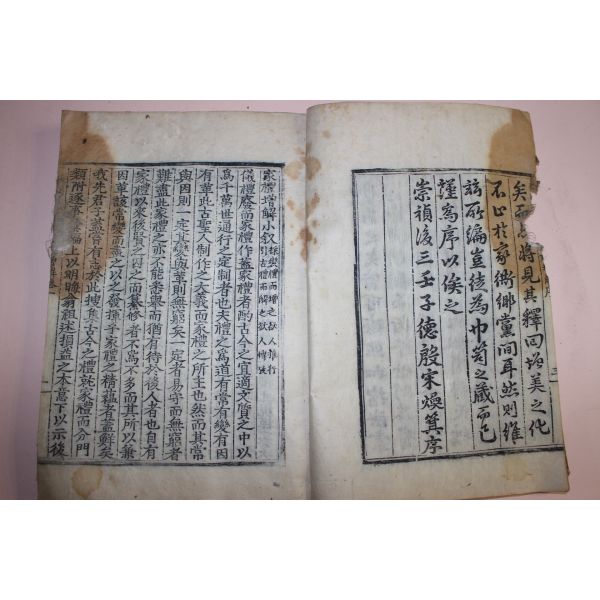 矣 將見其釋回增美之化
不止於家術鄉黨間耳然則維
玆所編豈徒為巾笥之藏而已
謹為序以俟之
崇禎後三壬子德殷宋煥箕序
家禮增解小叙
儀禮廢而家禮作蓋家禮者酌古今之宜適文質之中以
爲千萬世通行之定制者也夫禮之爲道有常有變有因
有革此古聖人制作之大義而家禮之所主也然而其常
與因則一定其變與革則無窮矣一定者易守而無窮者
難盡此家禮之亦不能悉擧而猶有待於後人者也自有
家禮以來後賢之 而纂修者不爲不多而其所以兼
因革該常變而 之以之發揮乎家禮之精蘊者蓋鮮矣
我先君子 嘗有志於此搜集古今之禮就家禮而分門
類附逐 以明 翁祖述損益之本意下以示後